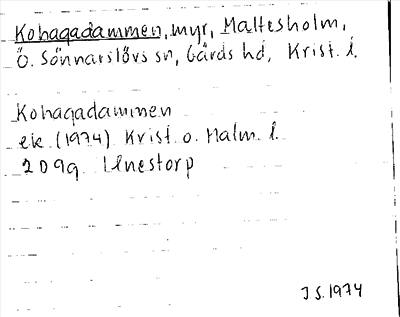 Kohagadammen, myr, Maltesholm,
Ö. Sönnarslövs sn, Gärds hd, Krist. l.
Kohagadammen
ek (1974) Krist. o. Malm. l.
2 D 9g Linestorp
J S. 1974